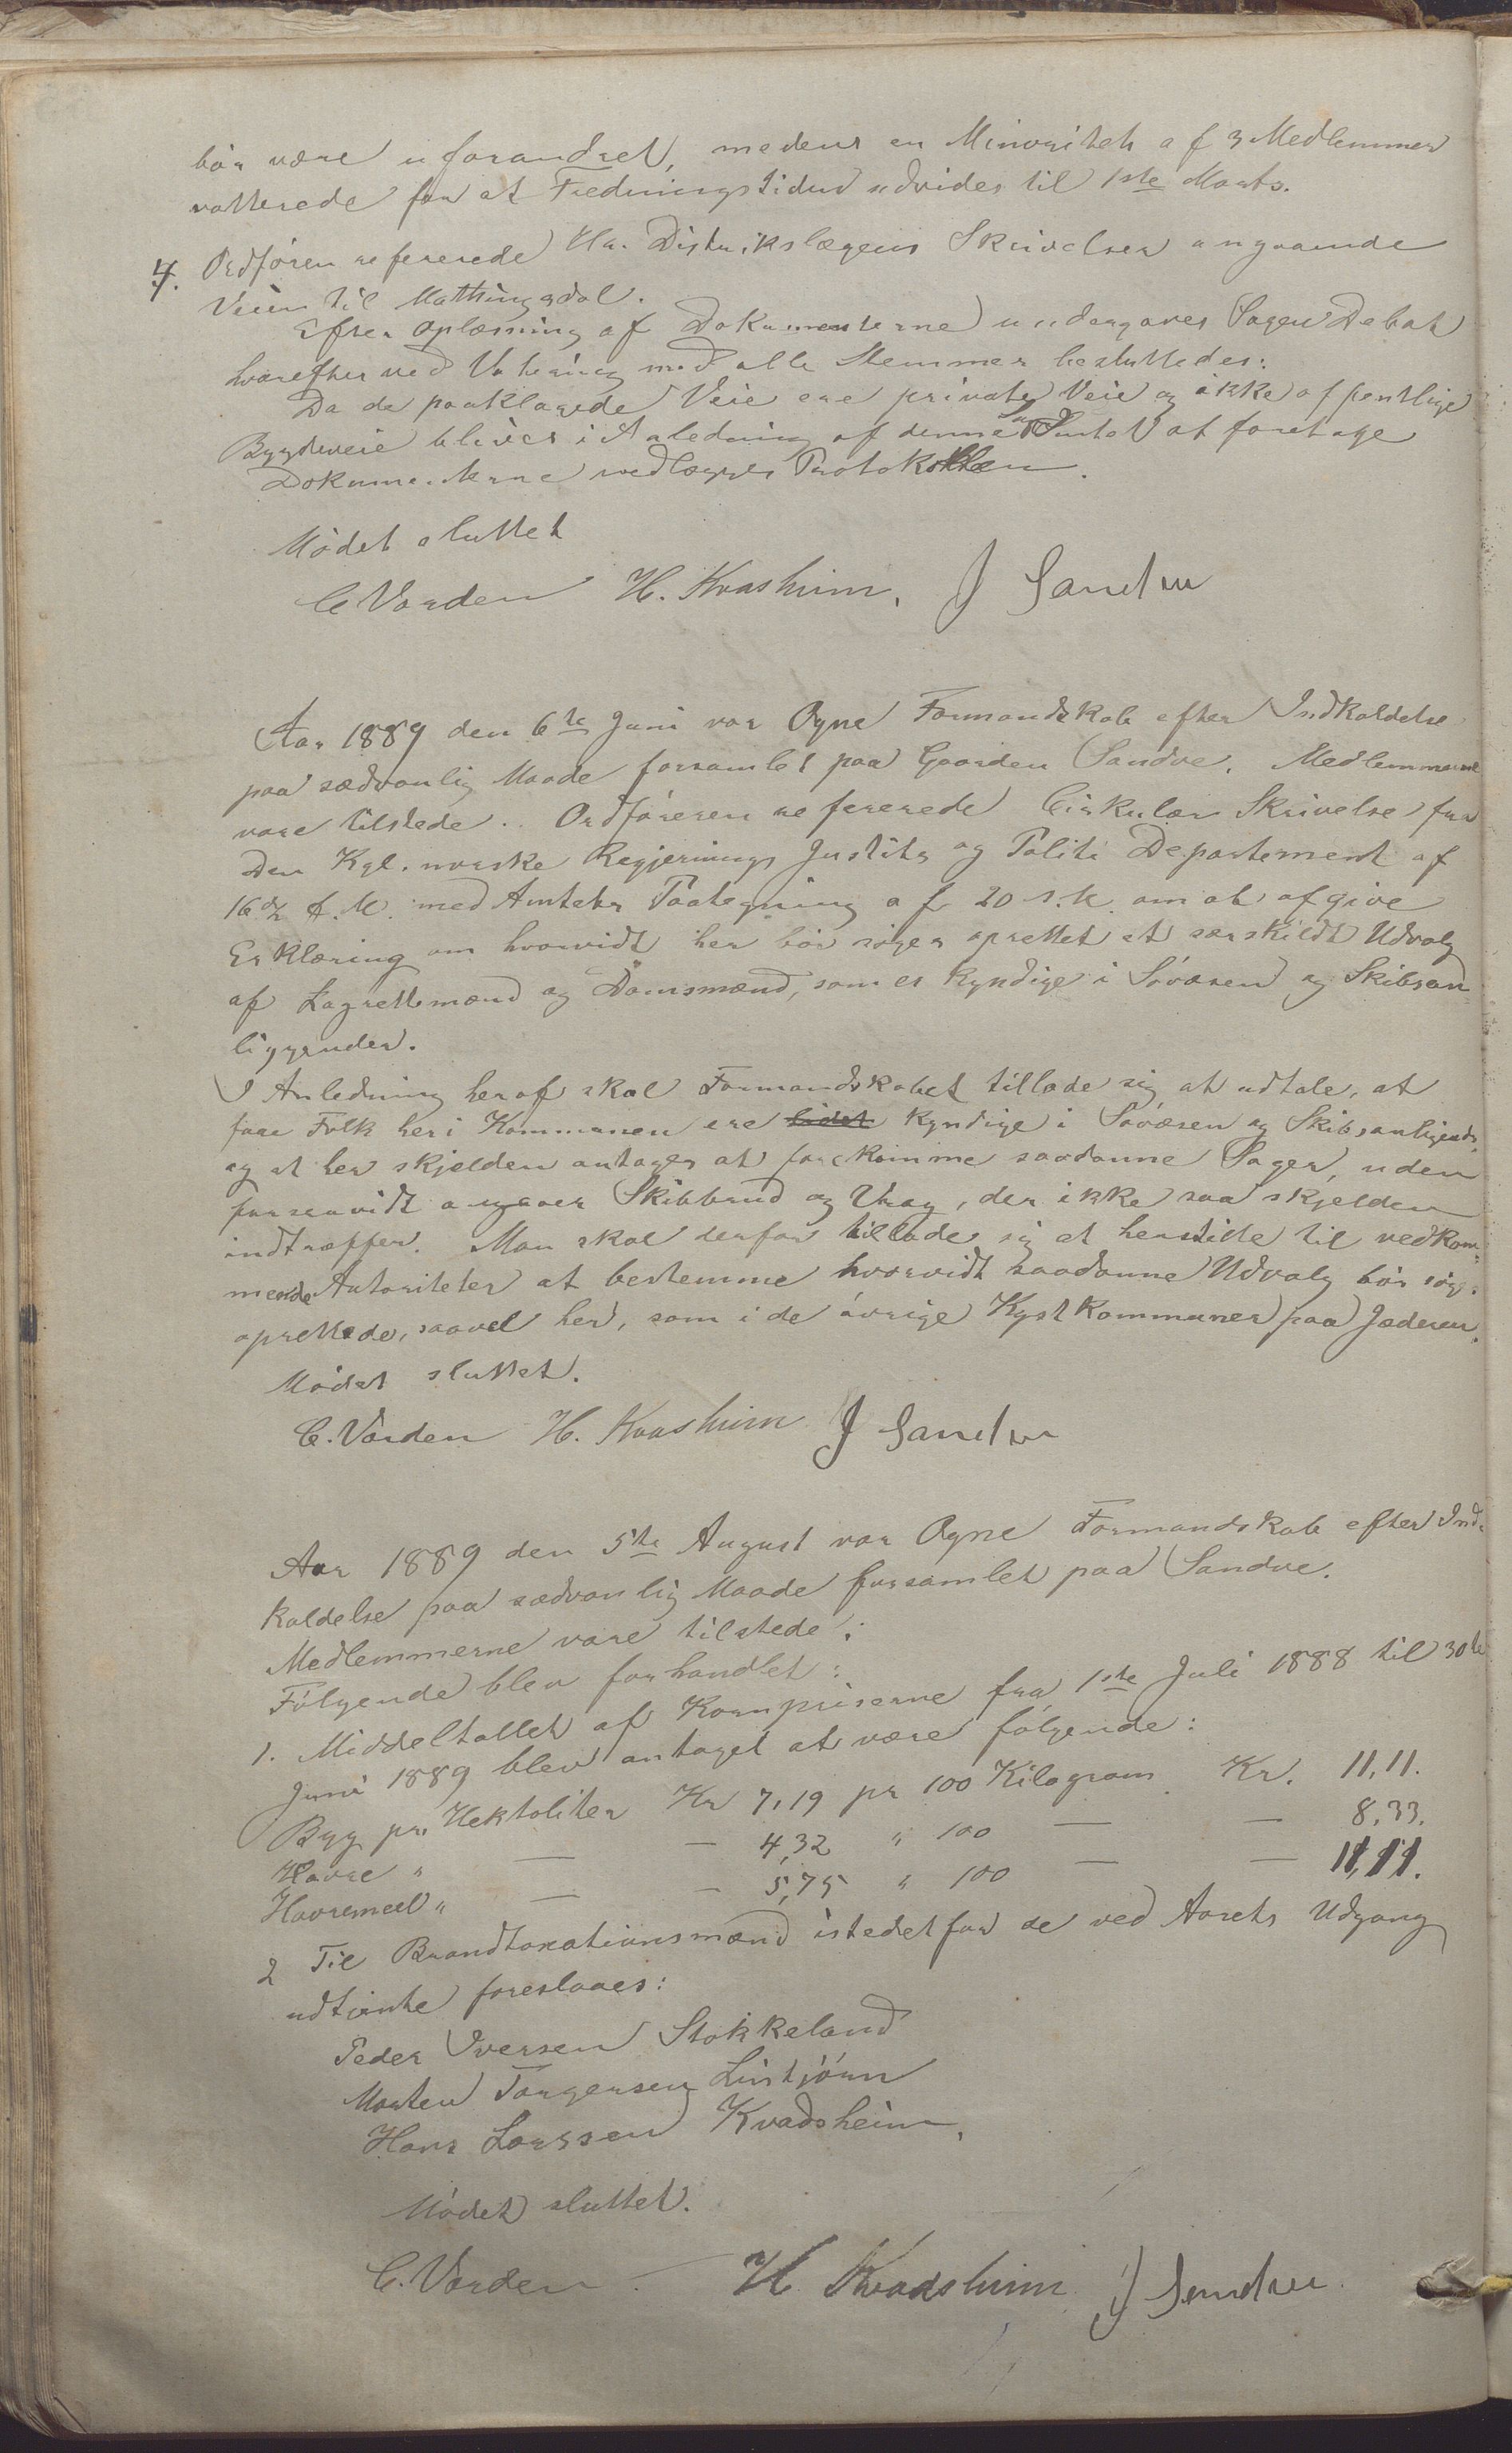 bör være uforandret, medens en Minoritet af 3 Medlemmer
votterede for at Fredningstiden udvides til 1ste Marts.
4. Ordføren refererede Hr. Distrikslægens Skrivelser angaaende
Veien til Matthingsdal.
Efter Oplæsning af Dokumenterne undergaves Sagen Debat
hvorefter ved Votering med alle Stemmer besluttedes:
Da de paaklagede Veie ere private Veie og ikke offentlige
Bygdeveie bliver i Anledning af denne Sag Intet at foretage
Dokumenterne vedlægges Protokollen.
Mödet sluttet
C Varden H. Kvashim. J Sandve
Aar 1889 den 6te Juni var Ogne Formandskab efter Indkaldelse
paa sædvanlig Maade forsamlet paa Gaarden Sandve. Medlemmerne
vare tilstede. Ordföreren refererede Cirkulær Skrivelse fra
Den Kgl. norske Regjerings Justits og Politi Departement af
16de f. M. med Amtets Paategning af 20 s. M. om at afgive
Erklæring om hvorvidt her bör söges oprettet et særskildt Udvalg
af Lagrettemænd og Domsmænd, som er kyndige i Söväsen og Skibsan-
liggender.
I Anledning heraf skal Formandskabet tillade sig at udtale, at
faae Folk her i Kommunen ere kyndige i Söväsen og Skibsanligende
og at her skjelden antages at forekomme saadanne Sager, uden
forsaavidt angaaer Skibbrud og Vrag, der ikke saa skjelden
indtræffer. Man skal derfor tillade sig at henstille til vedkom-
mende Autoriteter at bestemme hvorvidt saadanne Udvalg bör sög.
oprettede, saavel her, som i de övrige Kystkommuner paa Jæderen.
Mödet sluttet.
C. Varden H. Kvashim J Sandve
Aar 1889 den 5te August var Ogne Formandskab efter Ind-
kaldelse paa sædvanlig Maade forsamlet paa Sandve.
Medlemmerne vare tilstede.
Fölgende blev forhandlet:
1. Middeltallet af Kornpriserne fra 1ste Juli 1888 til 30te
Juni 1889 blev antaget at være fölgende:
Byg pr. Hektoliter Kr 7,19 pr 100 Kilogram Kr. 11,11.
Havre " — — 4,32 " 100 — — 8,33.
Havremeel " — — 5,75 " 100 — — 11,11.
2 Til Brandtaxationsmænd istedetfor de ved Aarets Udgang
udtjente foreslaaes:
Peder Iversen Stokkeland
Morten Torgersen Lintjörn
Hans Larssen Kvadsheim.
Mödet sluttet.
C. Varden. H Kvadsheim J Sandve.